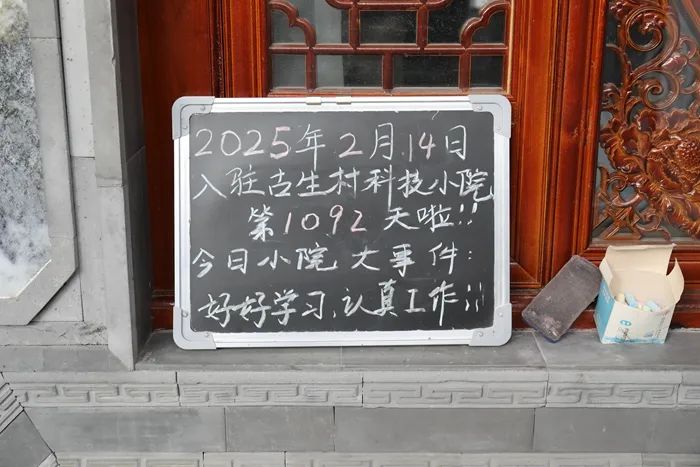 2025年2月14日
入驻古生村科技小院
第1092天啦!!
今日小院大事件:
好好学习、认真工作!!